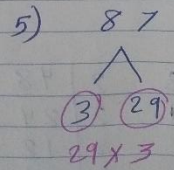 5) 87
3 29
29 x 3